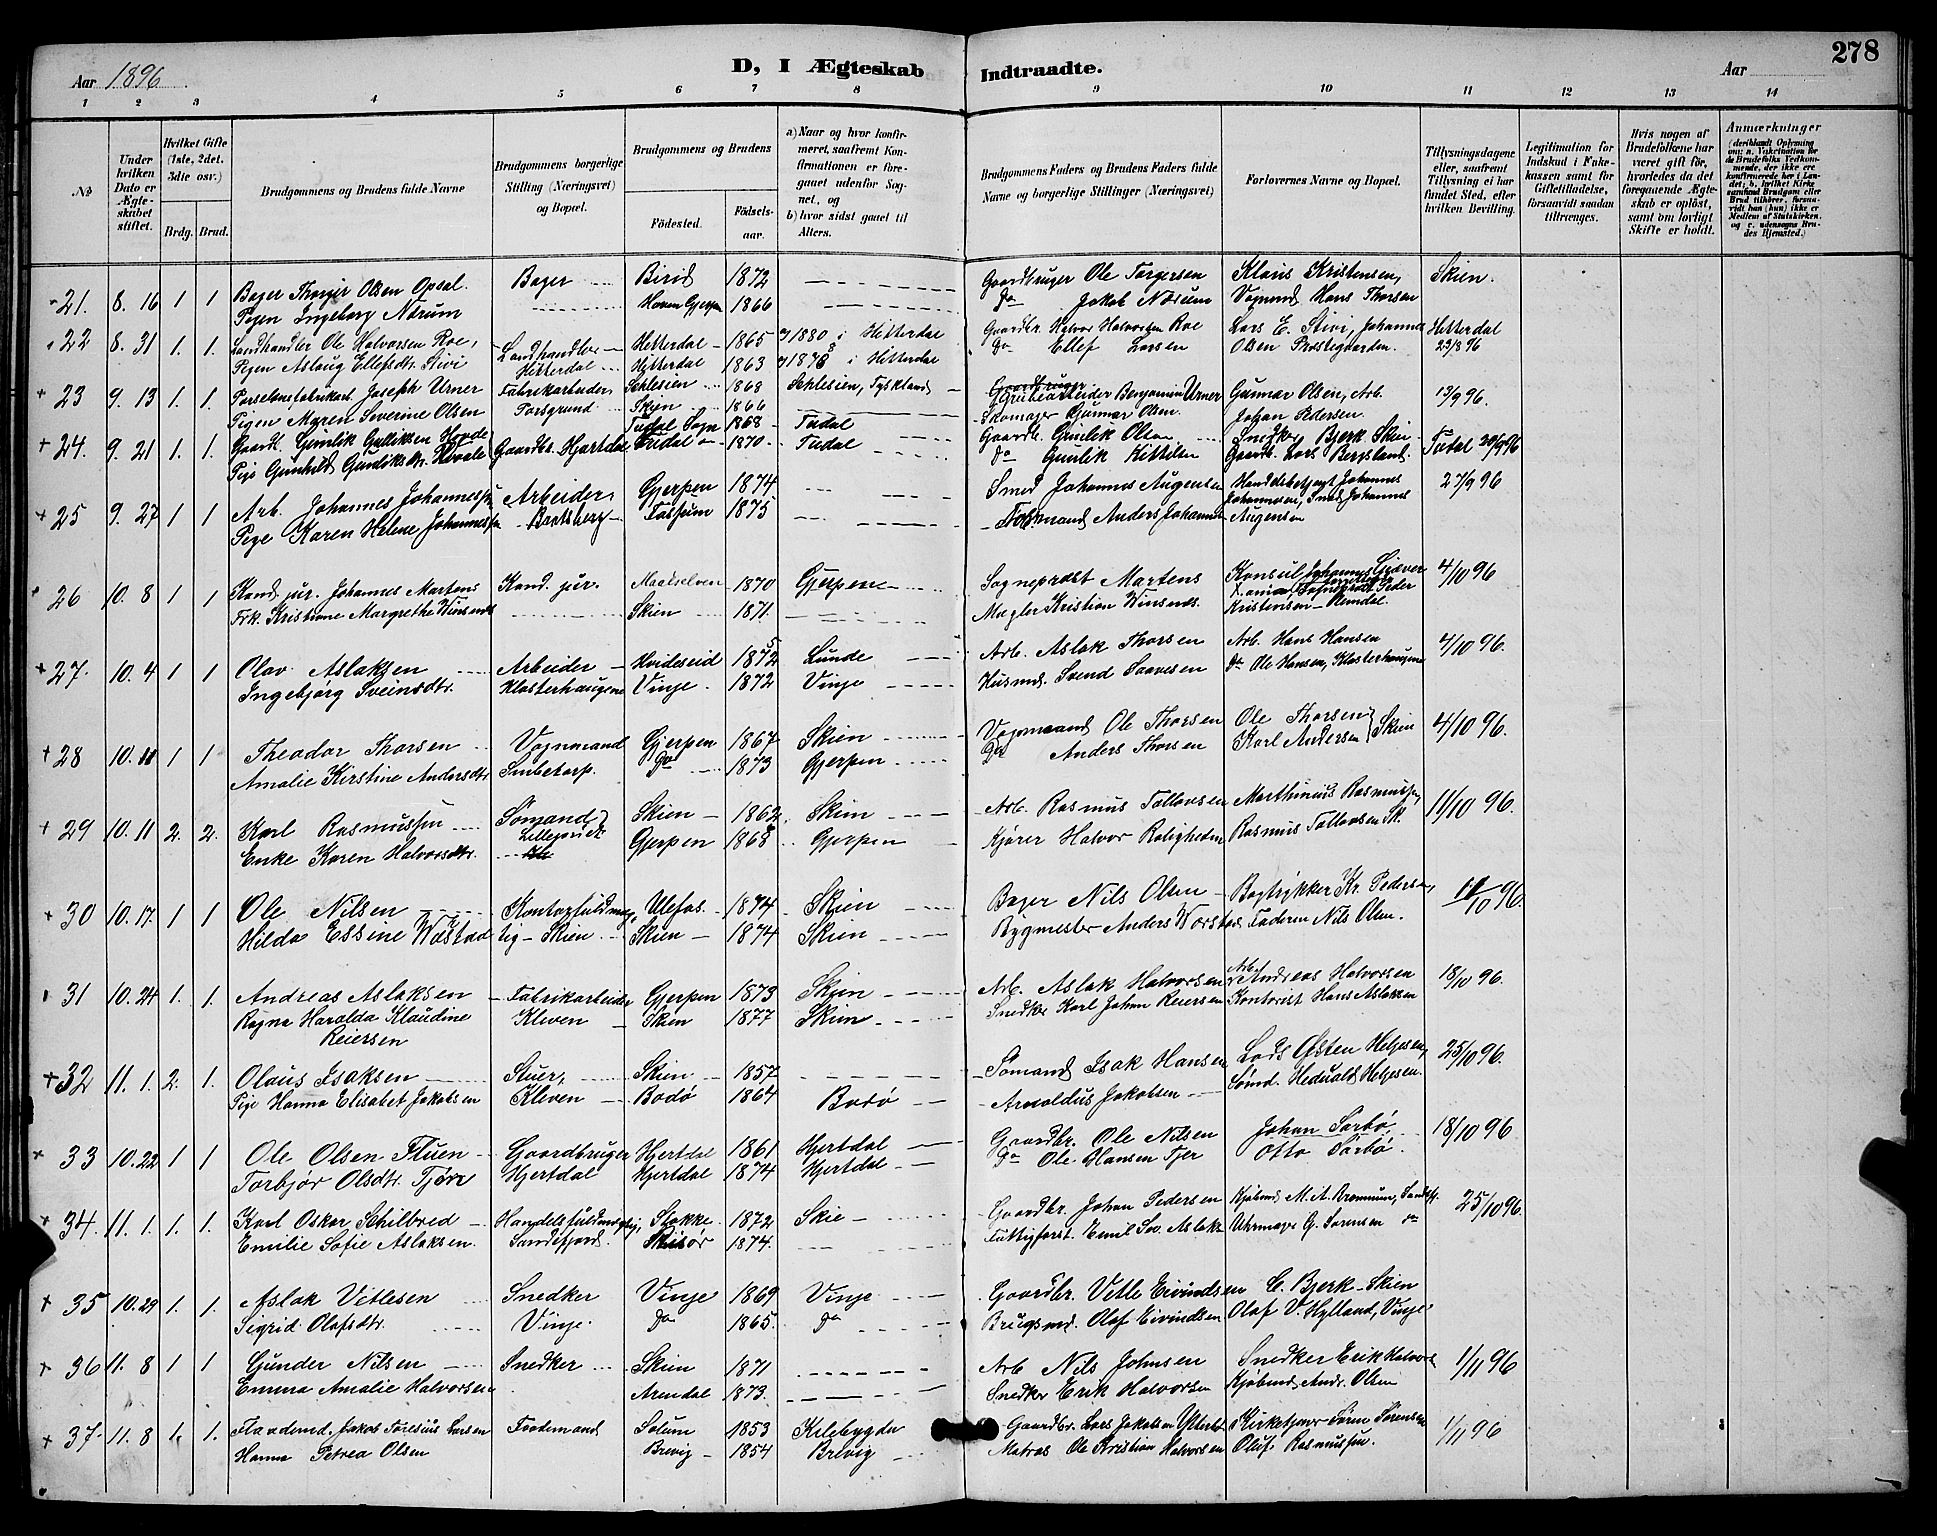 278
Aar 1896
D, I Ægteskab Indtraadte.
Aar
1 2 3 4 5 6 7 8 9 10 11 12 13 14
No
Under hvilken Dato er Ægteskabet stiftet.
Hvilket Gifte (1ste, 2det, 3die osv.)
Brdg. Brud.
Brudgommens og Brudens fulde Navne
Brudgommens borgerlige Stilling (Næringsvei) og Bopæl.
Brudgommens og Brudens
Fødested.
Fødselsaar.
a) Naar og hvor konfirmeret, saafremt Konfirmationen er foregaaet udenfor Sognet, og
b) hvor sidst gaaet til Alters.
Brudgommens Faders og Brudens Faders fulde Navne og borgerlige Stillinger (Næringsvei)
Forlovernes Navne og Bopæl.
Tillysningsdagene eller, saafremt Tillysning ei har fundet Sted, efter hvilken Bevilling.
Legitimation for Indskud i Enkekassen samt for Giftetilladelse, forsaavidt saadan tiltrænges.
Hvis nogen af Brudefolkene har været gift før, hvorledes da det foregaaende Ægteskab er opløst, samt om lovligt Skifte er holdt.
Anmærkninger (deriblandt Oplysning om: a. Vakcination for de Brudefolks Vedkommende, der ikke er konfirmerede her i Landet; b. hvilket Kirkesamfund Brudgom eller Brud tilhører, forsaavidt han (hun) ikke er Medlem af Statskirken, og c. udensogns Brudes Hjemsted.)
21. 8. 16 1 1 Bager Thorger Olsen Opsal. Bager Birid 1872 Gaardbruger Ole Torgersen Klaus Kristensen, Skien.
Pigen Ingeborg Nærum Hoven Gjerpen 1866 do Jakob Nærum Vognmd Hans Thorsen
22 8. 31 1. 1. Landhandler Ole Halvorsen Roe, Landhandler Hitterdal 1865 1880 i Hitterdal Gaardbr. Halvor Halvorsen Roe Lars E. Stivi, Johannes Hitterdal
Pigen Aslaug Ellefsdtr. Stivi Hitterdal Hitterdal 1863 1878 i Hitterdal do Ellef Larsen Olsen Prestegaarden. 23/8 96
+ 23 9. 13 1. 1. Porselensfabrikarb. Joseph Urner Fabrikarbeider Schlesien 1868 Schlesien, Tyskland Grubearbeider Benjamin Urner Gunnar Olsen, Arb. 13/9 96.
Pigen Maren Severine Olsen Porsgrund Skien 1866 Skomager Gunnar Olsen. Johan Pedersen.
+ 24. 9. 21 1. 1. Gaardb. Gunlik Gulliksen Hovde Gaardbr. Hjartdal Tudal Sogn 1868 Tudal Gaardb. Gunlik Olsen Snedker Bjerk Skien Tudal 20/9 96
Pige Gunhild Gunliksdtr. Hovale 1870 Tudal do Gunlik Kittilsen Gaardb. Lars Bergsland.
+ 25 9. 27 1 1 Arb. Johannes Johannessen Arbeider Gjerpen 1874 Smed Johannes Augensen Handelsbetjent Johannes 27/9 96
Pige Karen Helene Johannessen Bratsberg Fossum 1875 Anders Johannes Johannesen, Smed Johannes Augensen
26 10. 8 1 1 Kand. jur. Johannes Martens Kand. jur. Maalselven 1870 Gjerpen Sogneprest Martens Konsul Johannes Giæver 4/10 96
Frk. Kristiane Margrethe Winsnes Skien 1871. Mægler Kristian Winsnes. Sogneprest Peder Kristensen
+ 27. 10. 4 1 1 Olav Aslaksen Arbeider Hvideseid 1875 Lunde Arb. Aslak Thorsen Arb. Hans Hansen 4/10 96.
Ingebjørg Sveinsdtr. Klosterhaugene Vinje. 1872 Vinje Husmd. Svend Saavesen do Ole Hansen, Klosterhaugene
+ 28 10. 11 1 1 Theodor Thorsen Vognmand Gjerpen 1867 Skien Vognmand Ole Thorsen Ole Thorsen } Skien 4/10 96.
Amalie Kirstine Andersdtr Smbetorp. do 1873 Gjerpen do Anders Thorsen Karl Andersen
+ 29 10. 11 2. 2. Karl Rasmussen Sømand Skien 1862 Skien Arb. Rasmus Tollovsen Marthinius Rasmussen, 11/10 96.
Enke Karen Halvorsdtr. Lillegade Gjerpen 1868 Gjerpen Kjører Halvor Roligheden Rasmus Tollovsen Sk.
+ 30 10. 17. 1 1 Ole Nilsen Kontorfuldmæg Ulefos. 1874 Skien Bager Nils Olsen Bogtrykker Kr. Pedersen, 11/10 96.
Hilda Essine Worstad tig - Skien Skien 1874 Skien Bygmester Anders Worstad Faderen Nils Olsen.
31 10. 24 1. 1. Andreas Aslaksen Fabrikarbeider Gjerpen 1873 Skien Arb. Aslak Halvorsen Arb. Andreas Halvorsen 18/10 96.
Ragna Haralda Klaudine Kleven Skien 1877 Skien Snedker Karl Johan Reiersen Kontorist Hans Aslaksen
Reiersen
+ 32 11. 1. 2. 1. Olaus Isaksen Stuer, Skien 1857 Sømand Isak Hansen Lods Østen Helgesen, 25/10 96.
Pige Hanna Elisabet Jakobsen Kleven Bodø 1864 Bodø Arnoldus Jakobsen Sømd. Heduald Helgesen.
33 10. 22 1 1 Ole Olsen Fluen Gaardbruger Hjertdal 1861 Hjertdal Gaardbr. Ole Nilsen Johan Sørbø, 18/10 96
Torbjør Olsdtr. Tjørn Hjertdal Hjertdal 1874 Hjertdal do Ole Hansen Tjer Otto Sørbø.
+ 34. 11. 1. 1. 1. Karl Oskar Schilbred Handelsfuldmægtig, Stokke 1872 Skie Gaardbr. Johan Pedersen Kjøbmd M. A. Bronnum, Sandefj. 25/10 96.
Emilie Sofie Aslaksen. Sandefjord. Risør 1874. Fattigforst. Emil Sev. Aslaks. Uhrmager G. Sørensen do
+ 35 10. 29 1. 1. Aslak Vetlesen Snedker Vinje 1869 Vinje Gaardbr. Vetle Eivindsen C. Bjerk - Skien
Sigrid Olafsdtr. Vinje. do 1865. do Brugsmd. Olaf Eivindsen Olaf V. Hylland, Vinje
+ 36 11. 8 1 1 Gunder Nilsen Snedker Skien 1871 Arb Nils Johnsen Snedker Erik Halvors 1/11 96
Emma Amalie Halvorsen Arendal 1873. Snedker Erik Halvorsen Kjøbmd. Andr. Olsen
+ 37. 11. 8 1. 1. Flaademd. Jakob Toresius Larsen Flaademand Solum 1853 Kilebygden Gaardbr. Lars Jakobsen Kirketjener Søren Sørensen 1/11 96
Hanna Petrea Olsen Brevig 1854 Brevig Matros Ole Kristian Halvorsen Oluf Rasmussen.